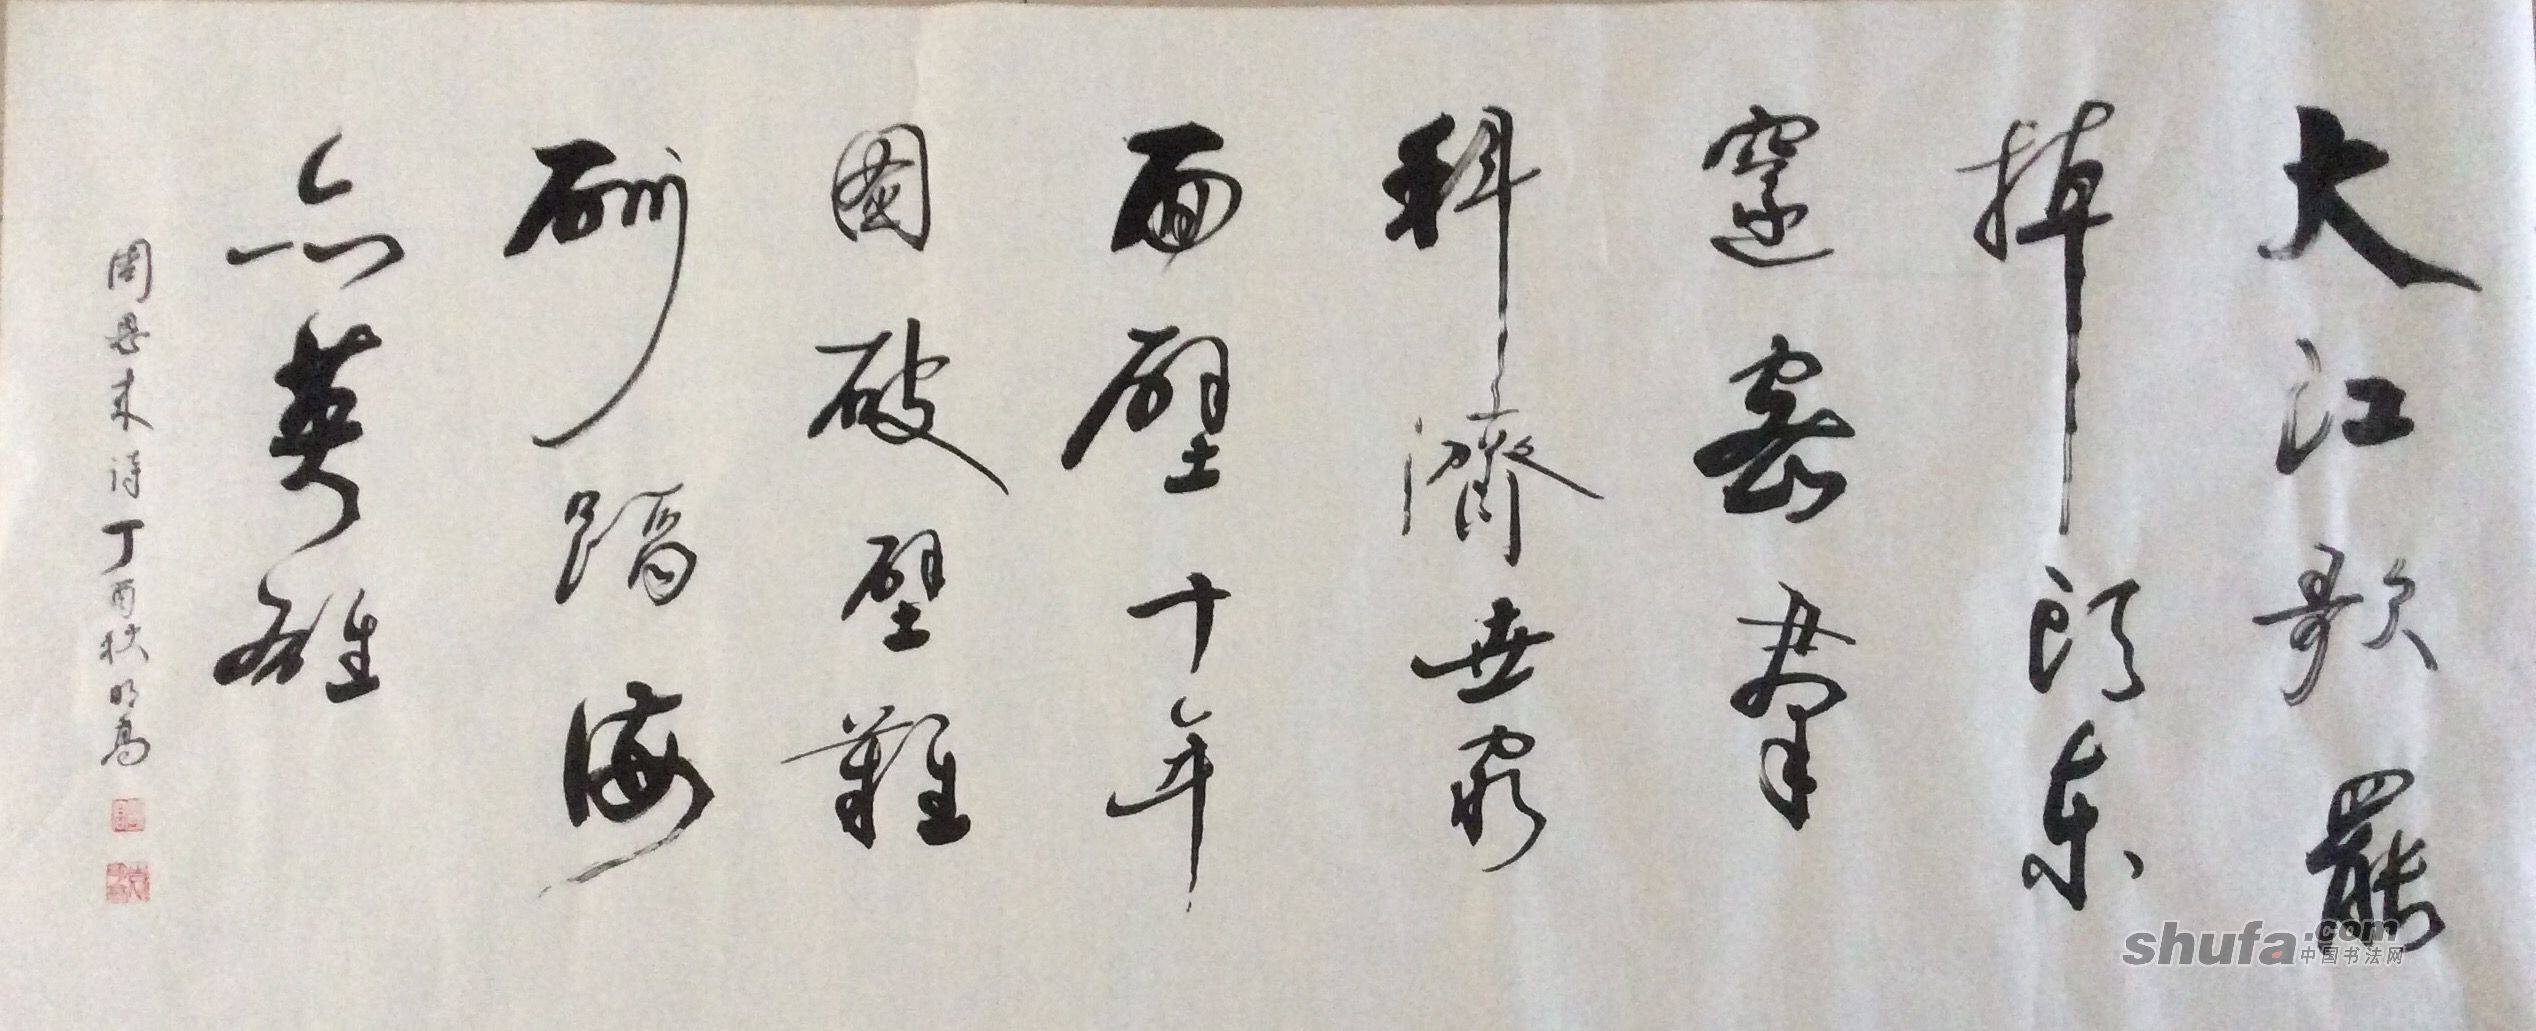 大江歌罷
掉頭東
邃密羣
科濟世窮
面壁十年
圖破壁難
酬蹈海
亦英雄
周恩来詩丁酉秋明
shufa.com
中国书法网